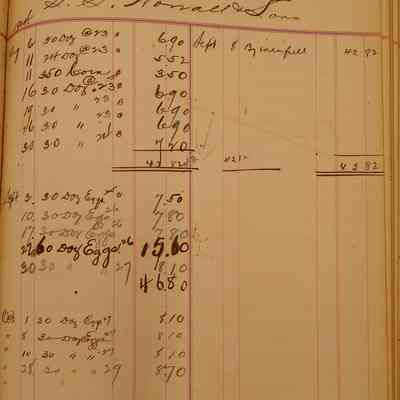 Worrall & Sons
Aug 6 30 Doz @ 23 6 90 Sept 8 By 42 82
11 24 Doz @ 23 5 52
11 350 Corn 3 50
16 30 Doz @ 23 6 90
19 30 " 23 6 90
26 30 " 23 6 90
30 30 " 7 20
42 82 42 82
Sept 3 30 Doz Eggs 25 7.50
10 30 Doz Eggs 26 7 80
17 30 Doz Eggs 26 7 80
60 Doz Eggs 26 15.60
30 30 " " 27 8 10
46 80
Oct 1 30 Doz Eggs 27 8 10
8 30 Doz Eggs 27 8 10
30 " " 27 8 10
28 30 " " 29 8.70